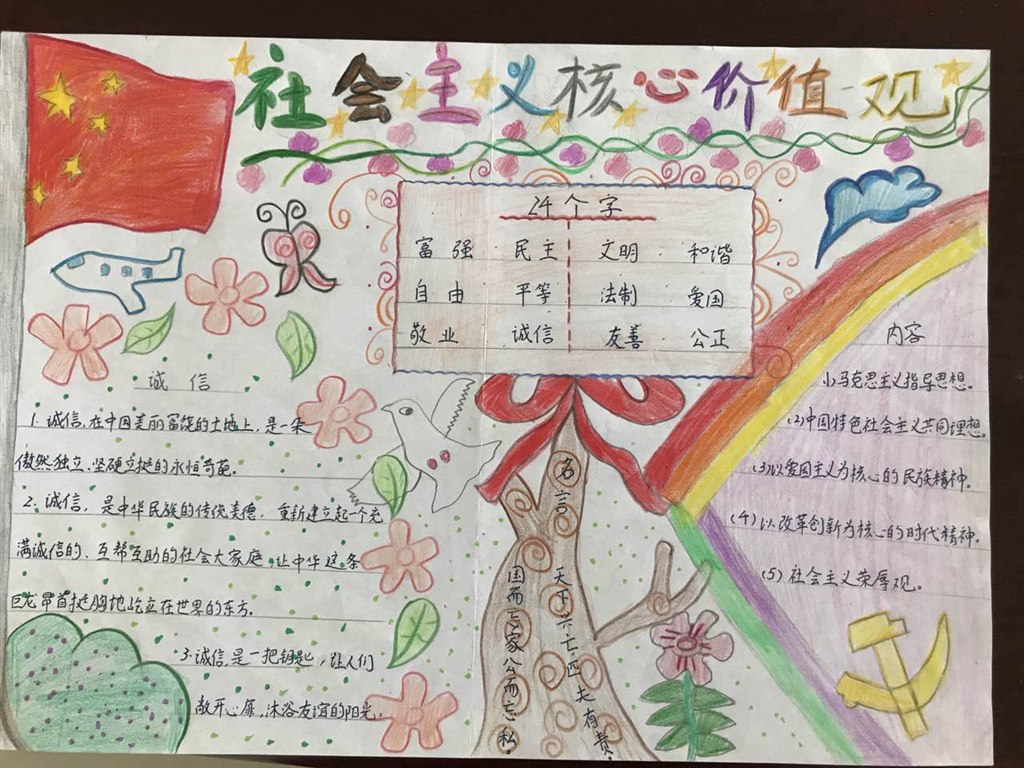 社会主义核心价值观
24个字
富强 民主 文明 和谐
自由 平等 法制 爱国
敬业 诚信 友善 公正
诚信
1. 诚信,在中国美丽富饶的土地上,是一朵
傲然独立、坚硬立挺的永恒奇葩。
2. 诚信,是中华民族的传统美德,重新建立起一个充
满诚信的、互帮互助的社会大家庭,让中华这条
巨龙昂首挺胸地屹立在世界的东方.
3. 诚信,是一把钥匙,让人们
敞开心扉,沐浴友谊的阳光。
名言
天下兴亡,匹夫有责。
国而忘家,公而忘私。
内容
(1)马克思主义指导思想。
(2)中国特色社会主义共同理想。
(3)以爱国主义为核心的民族精神。
(4)以改革创新为核心的时代精神。
(5)社会主义荣辱观。